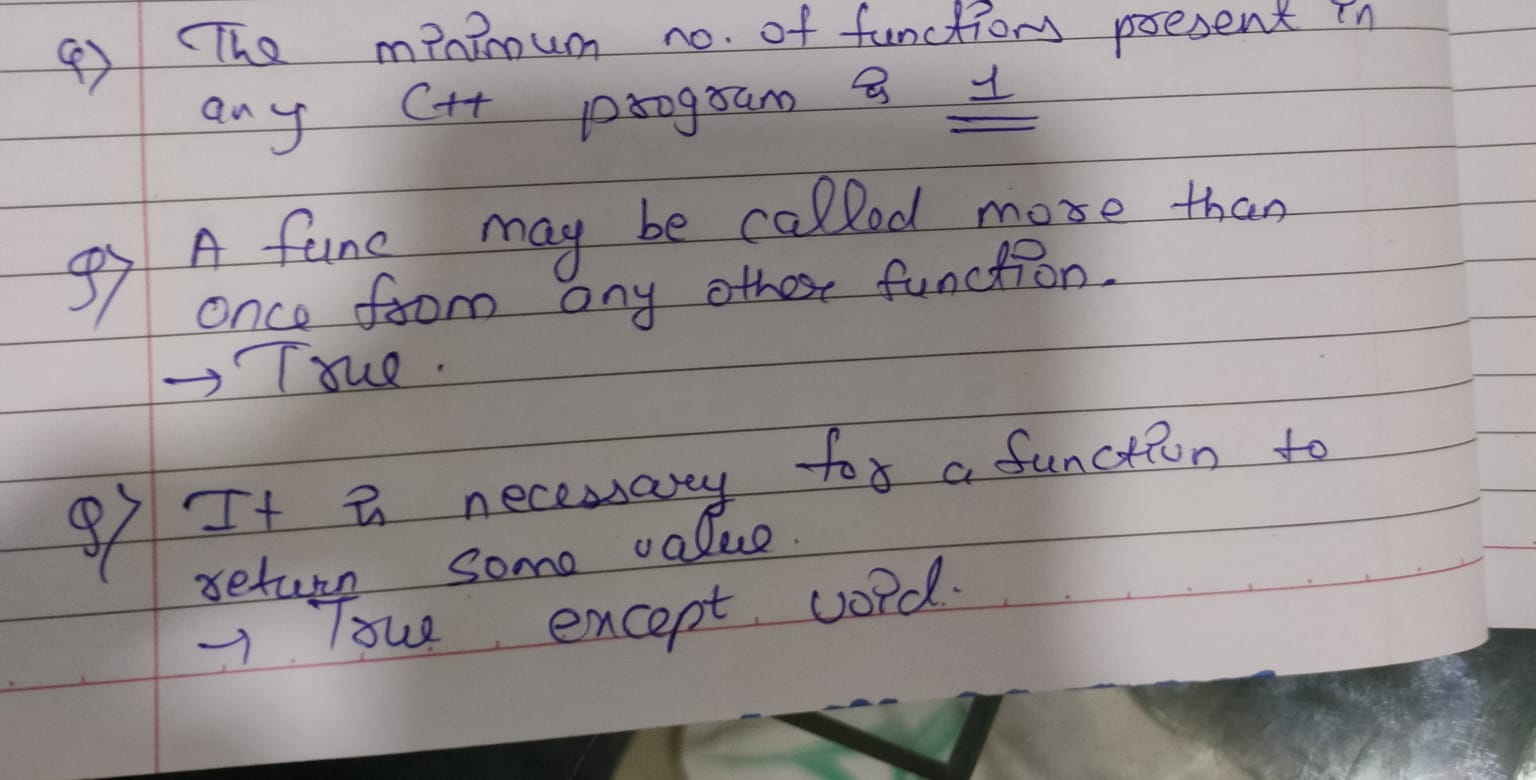 Q) The minimum no. of functions present in
any C++ program is 1
Q) A func may be called more than
once from any other function.
→ True.
Q) It is necessary for a function to
return some value.
→ True except void.